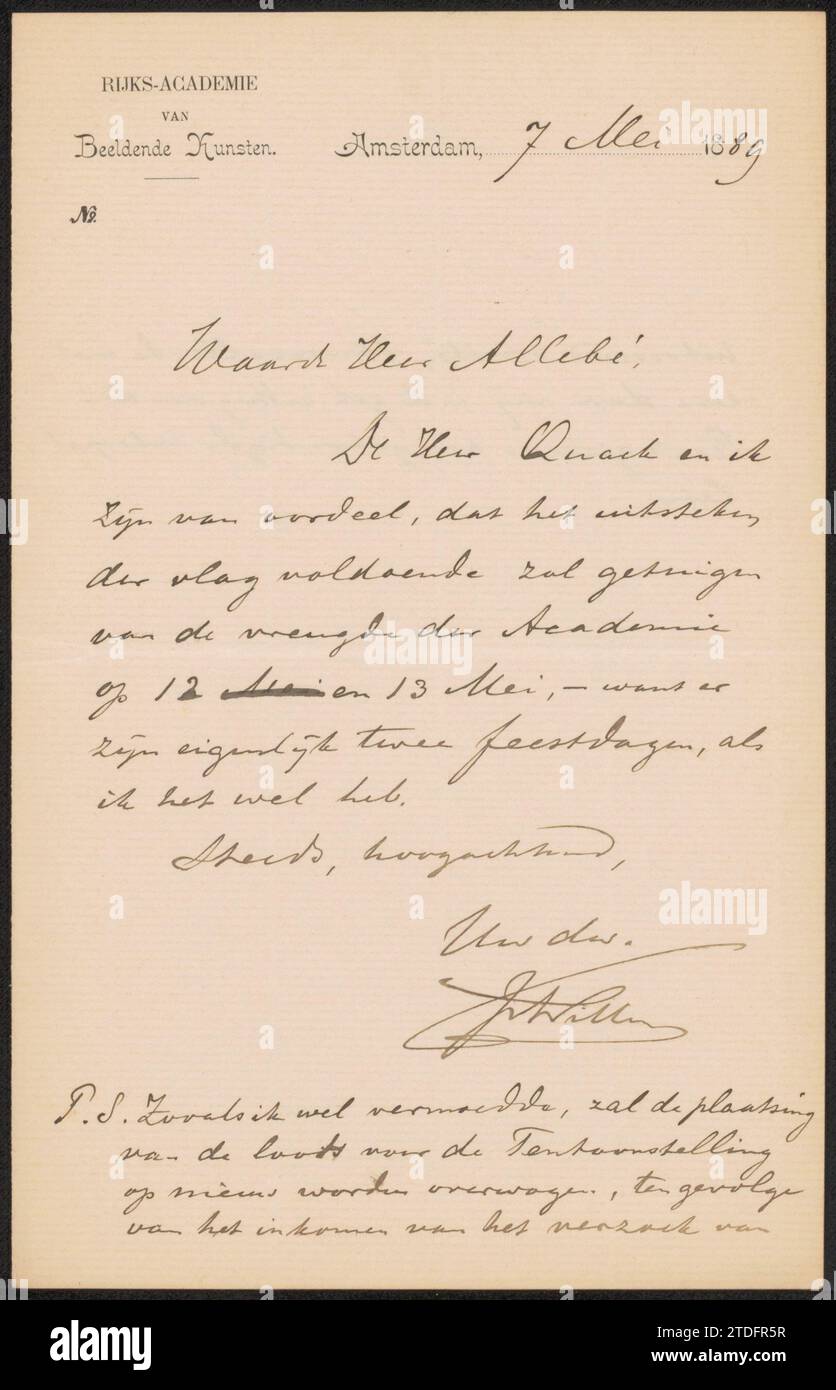 RIJKS-ACADEMIE
VAN
Beeldende Kunsten.
Amsterdam, 7 Mei 1889
No.
Waarde Heer Allebé,
De Heer Quack en ik
zijn van oordeel, dat het uitsteken
der vlag voldoende zal getuigen
van de vreugde der Academie
op 12 Mei en 13 Mei, – want er
zijn eigenlijk twee feestdagen, als
ik het wel heb.
Steeds, hoogachtend,
Uw dw.
P.S. Zooals ik wel vermoedde, zal de plaatsing
van de loods voor de Tentoonstelling
op nieuw worden overwogen, ten gevolge
van het inkomen van het verzoek van
alamy
Image ID: 2TDFR5R
www.alamy.com